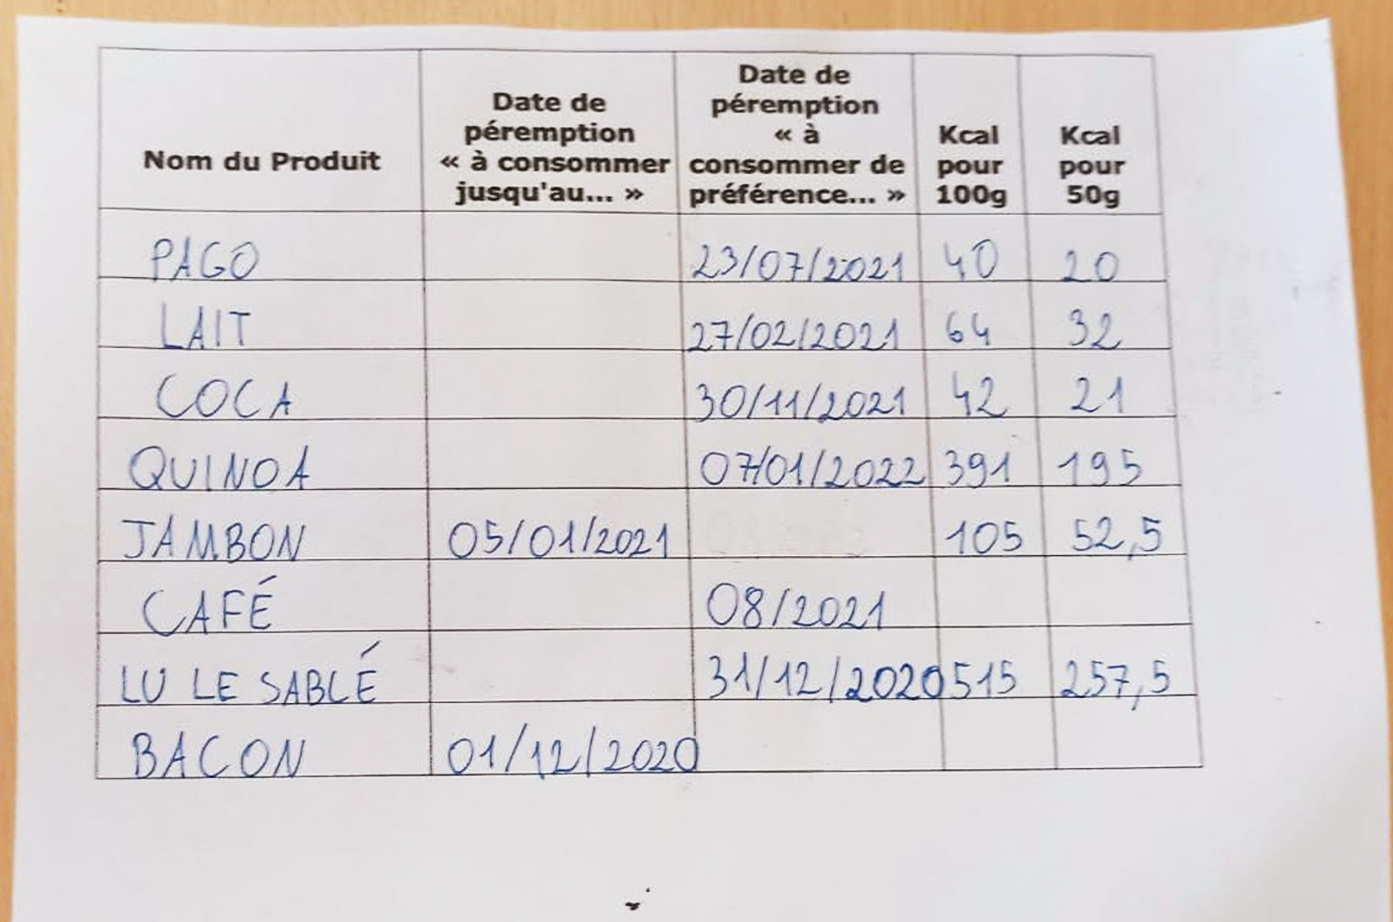 Nom du Produit
Date de
péremption
« à consommer
jusqu'au... »
Date de
péremption
« à
consommer de
préférence... »
Kcal
pour
100g
Kcal
pour
50g
PAGO 23/07/2021 40 20
LAIT 27/02/2021 64 32
COCA 30/11/2021 42 21
QUINOA 07/01/2022 391 195
JAMBON 05/01/2021 105 52,5
CAFÉ 08/2021
LU LE SABLÉ 31/12/2020 515 257,5
BACON 01/12/2020